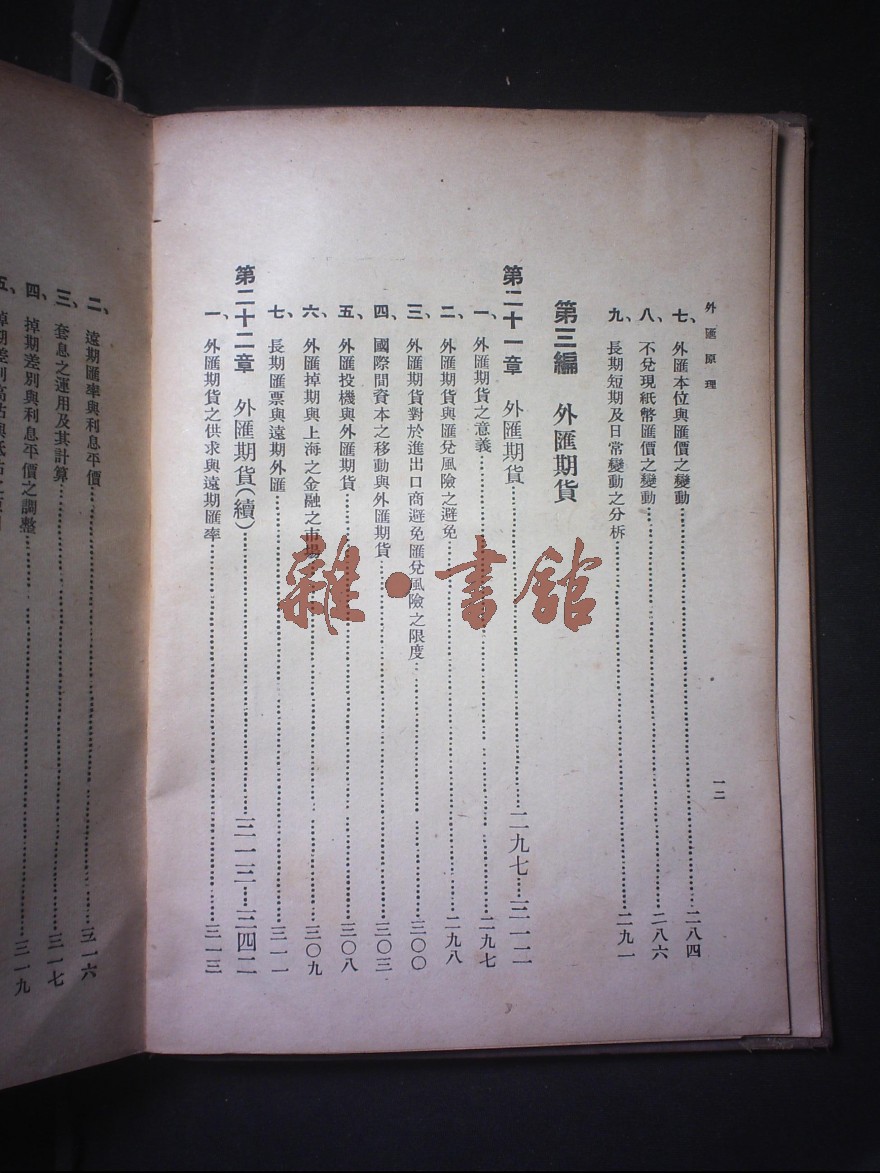 外匯原理
一二
七、外匯本位與匯價之變動……二八四
八、不兌現紙幣匯價之變動……二八六
九、長期短期及日常變動之分析……二九一
第三編　外匯期貨
第二十一章　外匯期貨……二九七……三一二
一、外匯期貨之意義……二九七
二、外匯期貨與匯兌風險之避免……二九八
三、外匯期貨對於進出口商避免匯兌風險之限度……三〇〇
四、國際間資本之移動與外匯期貨……三〇三
五、外匯投機與外匯期貨……三〇八
六、外匯掉期與上海之金融之市場……三〇九
七、長期匯票與遠期外匯……三一一
第二十二章　外匯期貨(續)……三一三……三四二
一、外匯期貨之供求與遠期匯率……三一三
二、遠期匯率與利息平價……三一六
三、套息之運用及其計算……三一七
四、掉期差別與利息平價之調整……三一九
五、掉期差別高估與低估之
雜·書館